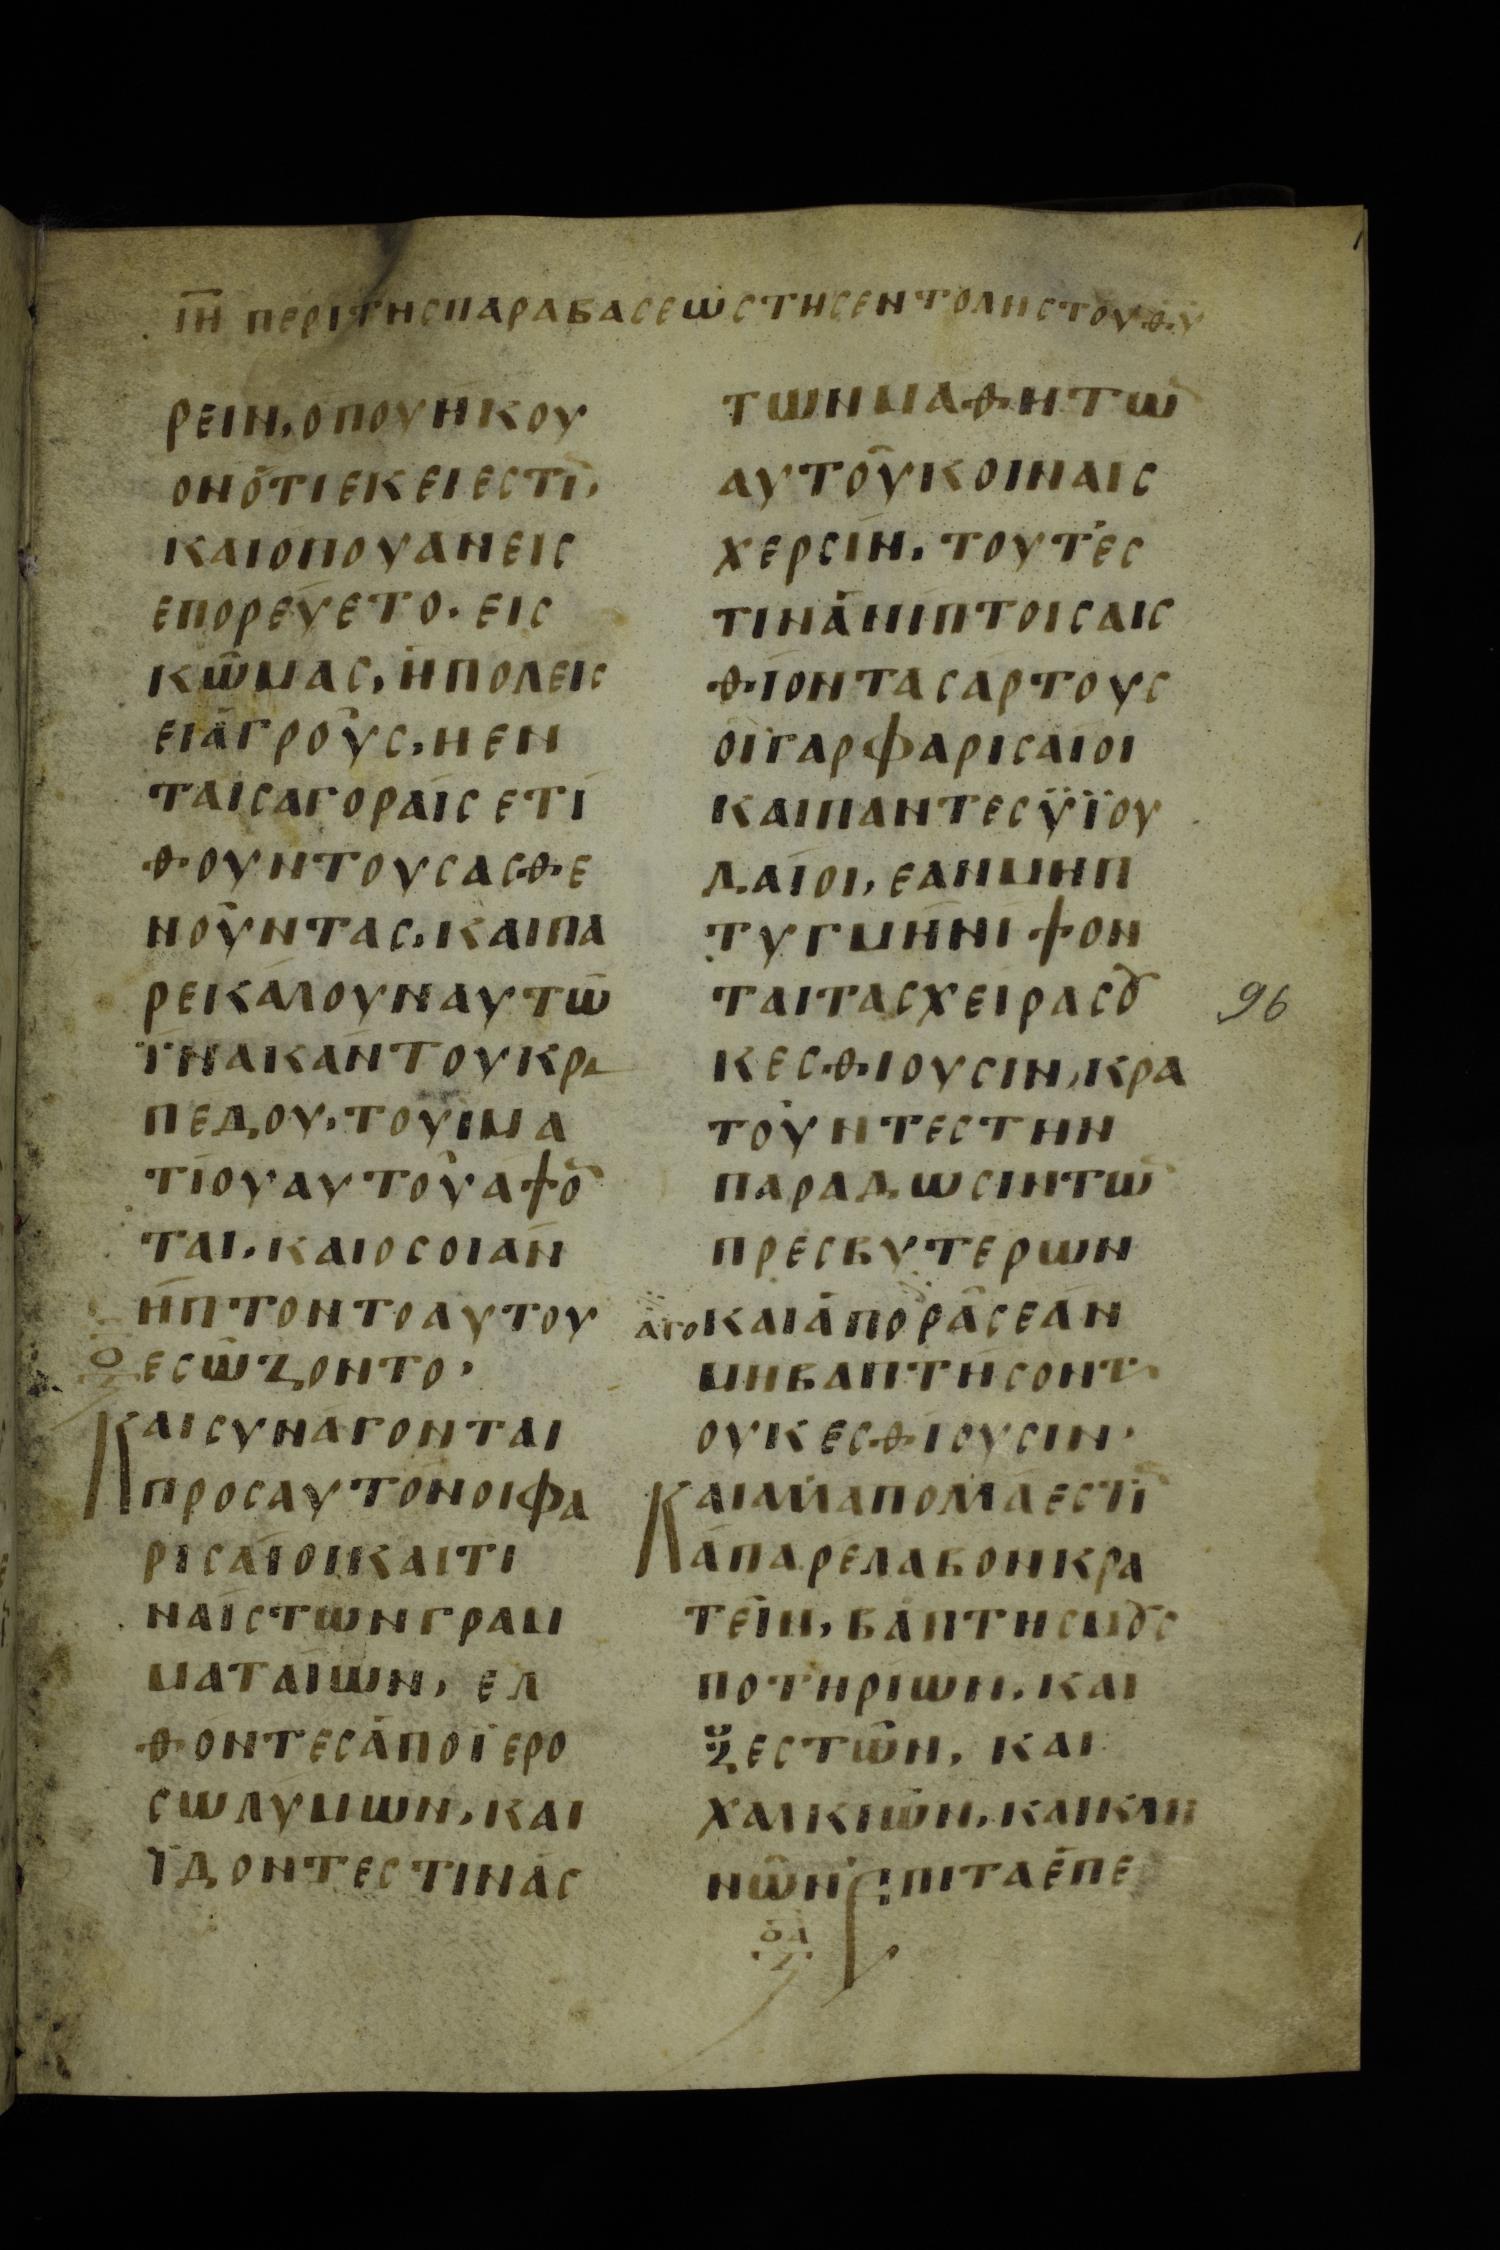 ΙΗ ΠΕΡΙΤΗСΠΑΡΑΒΑСΕѠСΤΗСΕΝΤΟΛΗСΤΟΥΘΥ
ΡΕΙΝ, ΟΠΟΥΗΚΟΥ
ΟΝΟΤΙΕΚΕΙΕСΤΙ̅,
ΚΑΙΟΠΟΥΑΝΕΙС
ΕΠΟΡΕΥΕΤΟ· ΕΙС
ΚѠΜΑС, ΗΠΟΛΕΙС
ΕΙΑΓΡΟΥС, ΗΕΝ
ΤΑΙСΑΓΟΡΑΙС ΕΤΙ
ΘΟΥΝΤΟΥСΑСΘΕ
ΝΟΥΝΤΑС, ΚΑΙΠΑ
ΡΕΚΑΛΟΥΝΑΥΤѠ̅
ΪΝΑΚΑΝΤΟΥΚΡΑ
ΠΕΔΟΥ, ΤΟΥΙΜΑ
ΤΙΟΥΑΥΤΟΥΑΨΟ̅
ΤΑΙ, ΚΑΙΟСΟΙΑΝ
ΗΠΤΟΝΤΟΑΥΤΟΥ
ΕСѠΖΟΝΤΟ,
ΚΑΙСΥΝΑΓΟΝΤΑΙ
ΠΡΟСΑΥΤΟΝΟΙΦΑ
ΡΙСΑΙΟΙΚΑΙΤΙ
ΝΑΙСΤѠΝΓΡΑΜ
ΜΑΤΑΙѠΝ, ΕΛ
ΘΟΝΤΕСΑΠΟΪΕΡΟ
СѠΛΥΜѠΝ, ΚΑΙ
ΪΔΟΝΤΕСΤΙΝΑС
ΤѠΝΜΑΘΗΤѠ̅
ΑΥΤΟΥΚΟΙΝΑΙС
ΧΕΡСΙΝ, ΤΟΥΤΕС
ΤΙΝΑΝΙΠΤΟΙСΑΙС
ΘΙΟΝΤΑСΑΡΤΟΥС
ΟΙΓΑΡΦΑΡΙСΑΙΟΙ
ΚΑΙΠΑΝΤΕСΫΪΟΥ
ΔΑΙΟΙ, ΕΑΝΜΗΠ
ΤΥΓΜΗΝΙΨΟΝ
ΤΑΙΤΑСΧΕΙΡΑСȢ
ΚΕСΘΙΟΥСΙΝ, ΚΡΑ
ΤΟΥΝΤΕСΤΗΝ
ΠΑΡΑΔѠСΙΝΤѠ̅
ΠΡΕСΒΥΤΕΡѠΝ
ΑΓΟ ΚΑΙΑΠΟΡΑСΕΑΝ
ΜΗΒΑΠΤΗСΟΝΤ
ΟΥΚΕСΘΙΟΥСΙΝ·
ΚΑΙΑΛΛΑΠΟΛΛΑΕСΤΙ̅
ΑΠΑΡΕΛΑΒΟΝΚΡΑ
ΤΕΙΝ, ΒΑΠΤΗСΜȢС
ΠΟΤΗΡΙѠΝ, ΚΑΙ
ΞΕСΤѠΝ, ΚΑΙ
ΧΑΛΚΙѠΝ, ΚΑΙΚΛΗ
ΝѠΝ ΕΠΙΤΑΕΠΕ
96